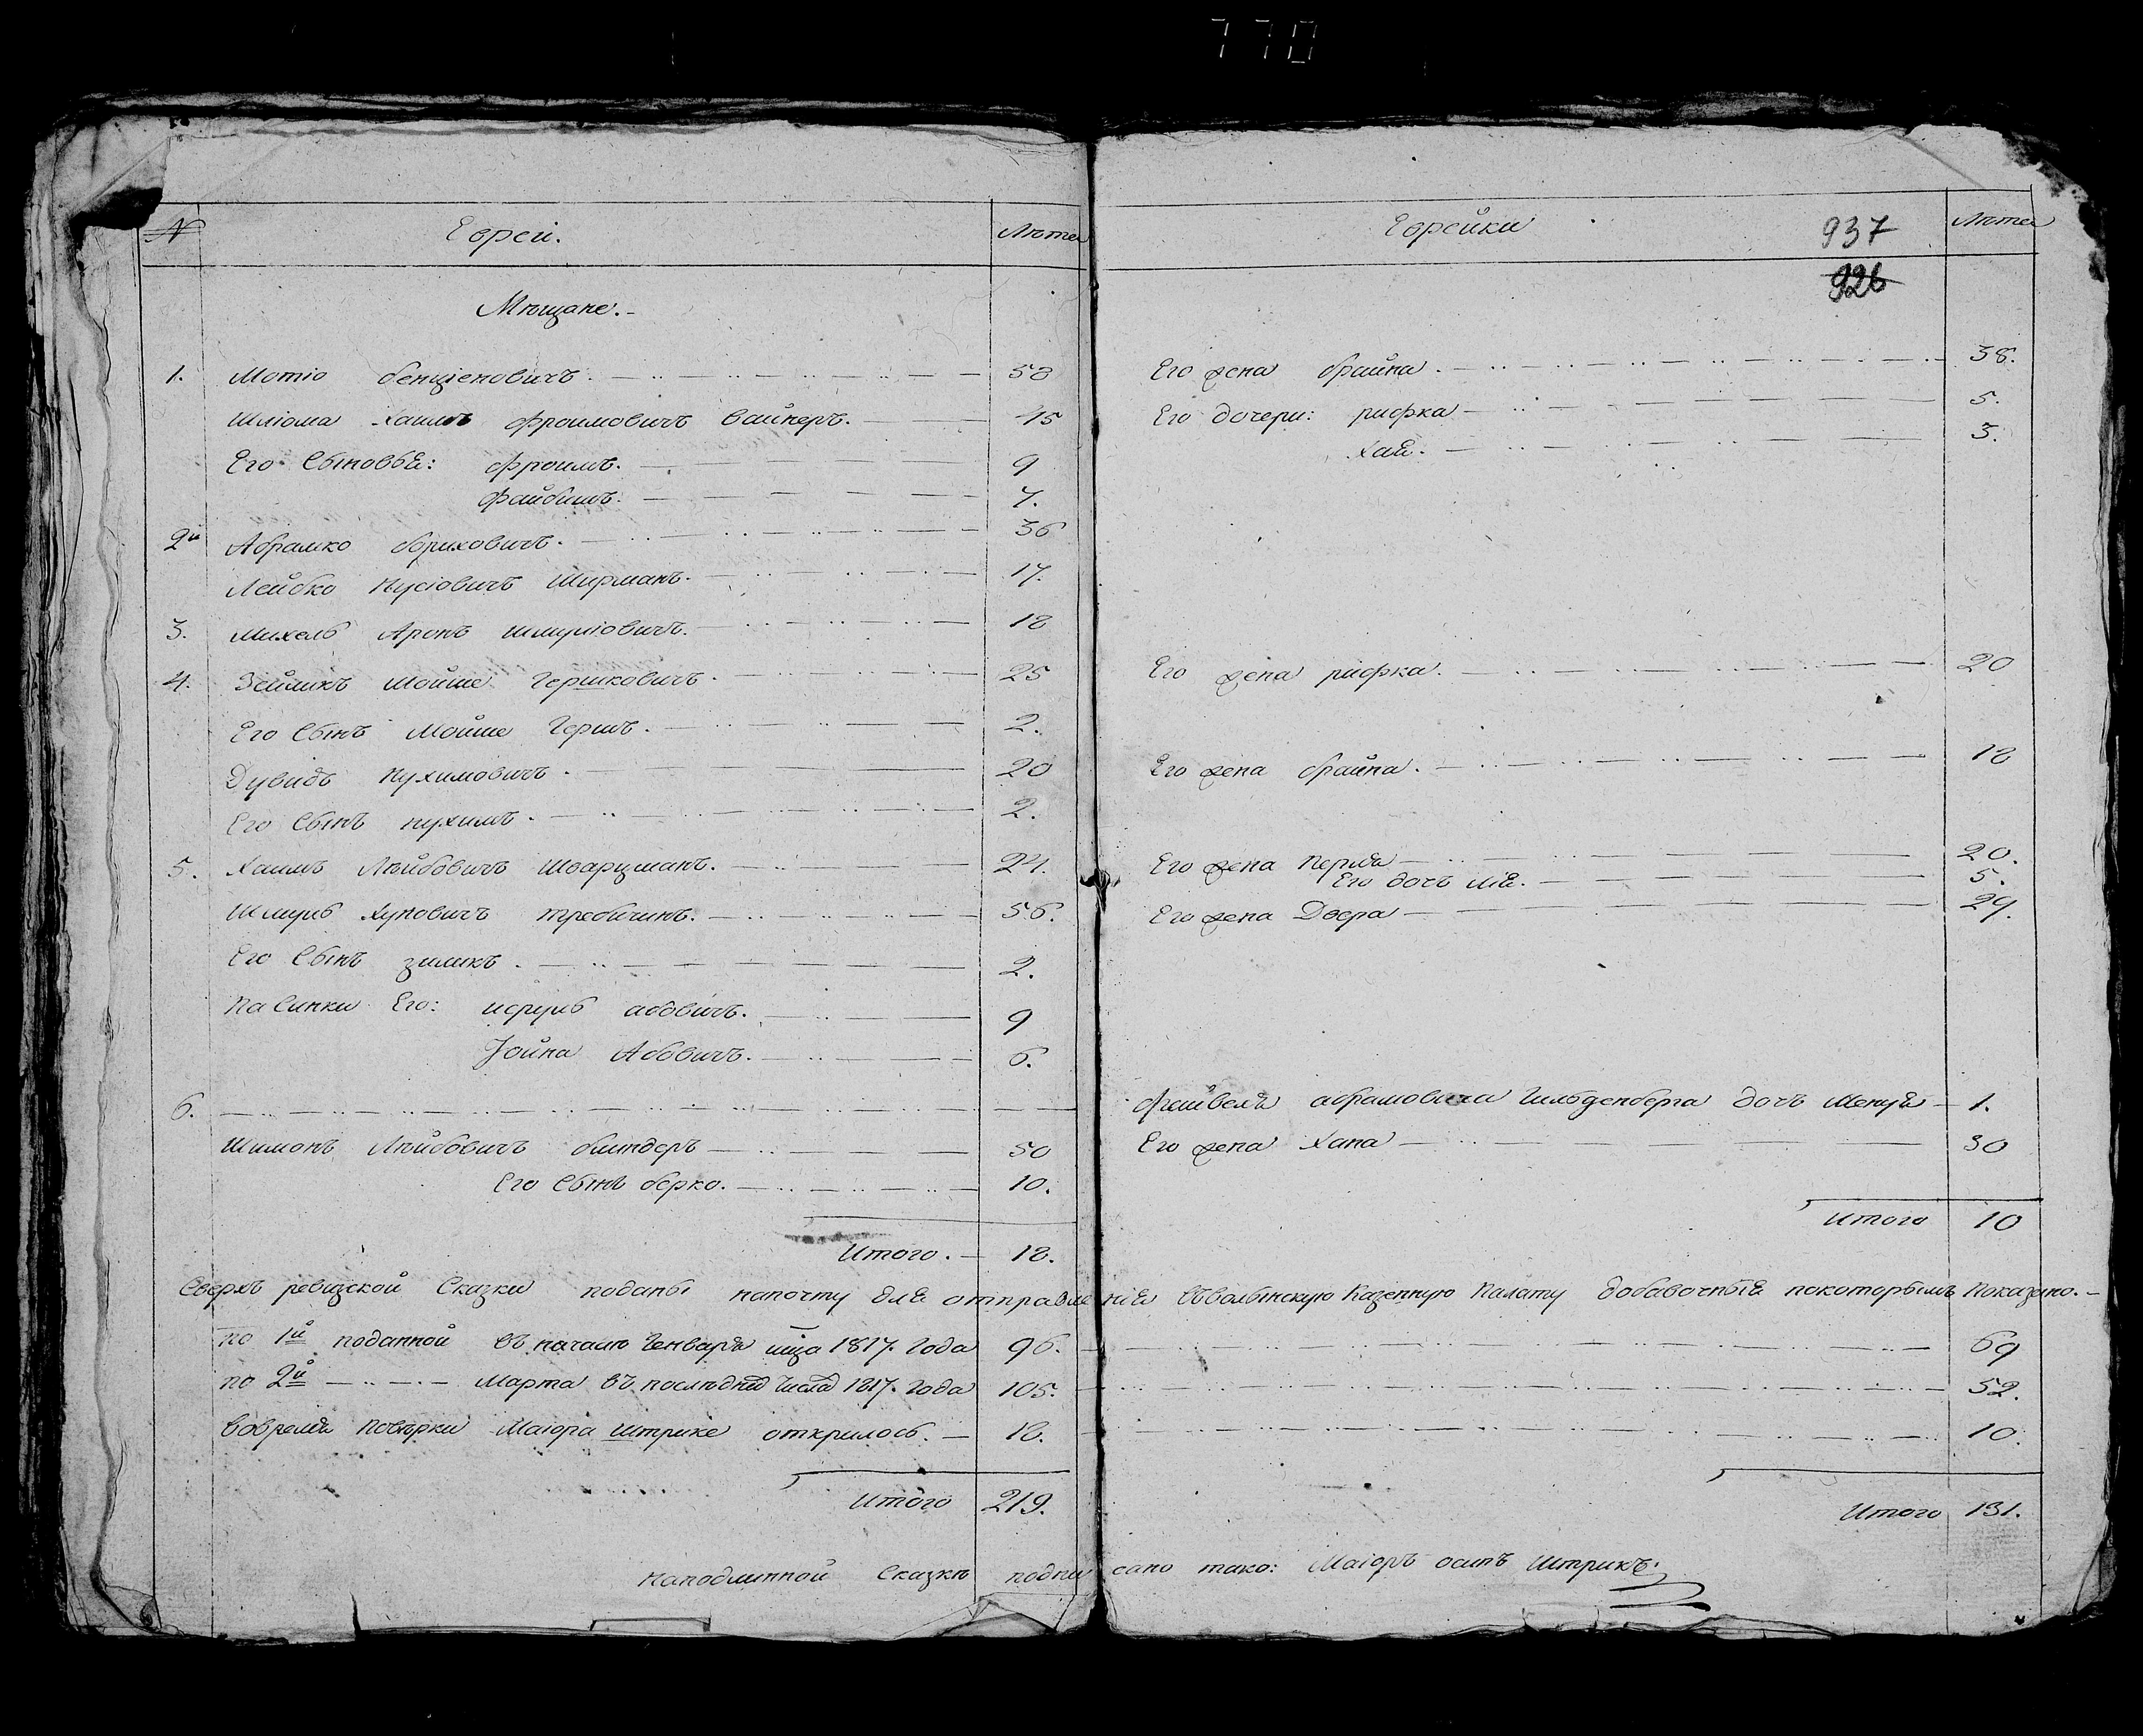 770
N Еврей. Лѣта
Мѣщане.
1. Мотіо бенціеновичъ. 53
Шліома Хаимъ фроимовичъ Вайнеръ. 45
Его Сыновья: фроимъ. 9
файбишъ. 7.
2й Абрамко бориховичъ. 36
Лейбко Нусіовичъ Ширманъ. 17.
3. Михель Аронъ Шмуліовичъ. 18
4. Зейликъ Мойше Гершковичъ. 25
Его Сынъ Мойше Гершъ. 2.
Дувидъ Нухимовичъ. 20
Его Сынъ нухимъ. 2.
5. Хаимъ Лѣйбовичъ Шварцманъ. 24.
Шмуль Хуновичъ требичинъ. 56.
Его Сынъ зиликъ. 2.
Пасинки Его: исруль абовичъ. 9
Jойна Абовичъ. 6.
6.
Шимонъ Лѣйбовичъ биндеръ 50
Его Сынъ берко. 10.
Итого. 18.
Еврейки 937 Лѣта
926
Его жена брайна. 38.
Его дочери: рифка 5.
Хая. 3.
Его жена рифка. 20
Его жена брайна. 18
Его жена Перля 20.
Его дочь лія. 5.
Его жена Двера 29.
фейвеля абрамовича Гильденберга дочь Менуя 1.
Его жена Хана 30
Итого 10
Сверхъ ревизской Сказки поданы напочту для отправленія Въволынскую Казенную Палату добавочныя покоторымъ Показано.
по 1й поданной въ началѣ Генваря мца 1817. Года 96. 69
по 2й Марта въ послѣдних числа 1817. Года 105. 52.
Вовремя Повѣрки Маіора Штрике открилось. 18. 10.
Итого 219. Итого 131.
Наподлинной Сказкѣ подписано тако: Маіоръ осипъ Штрикъ.